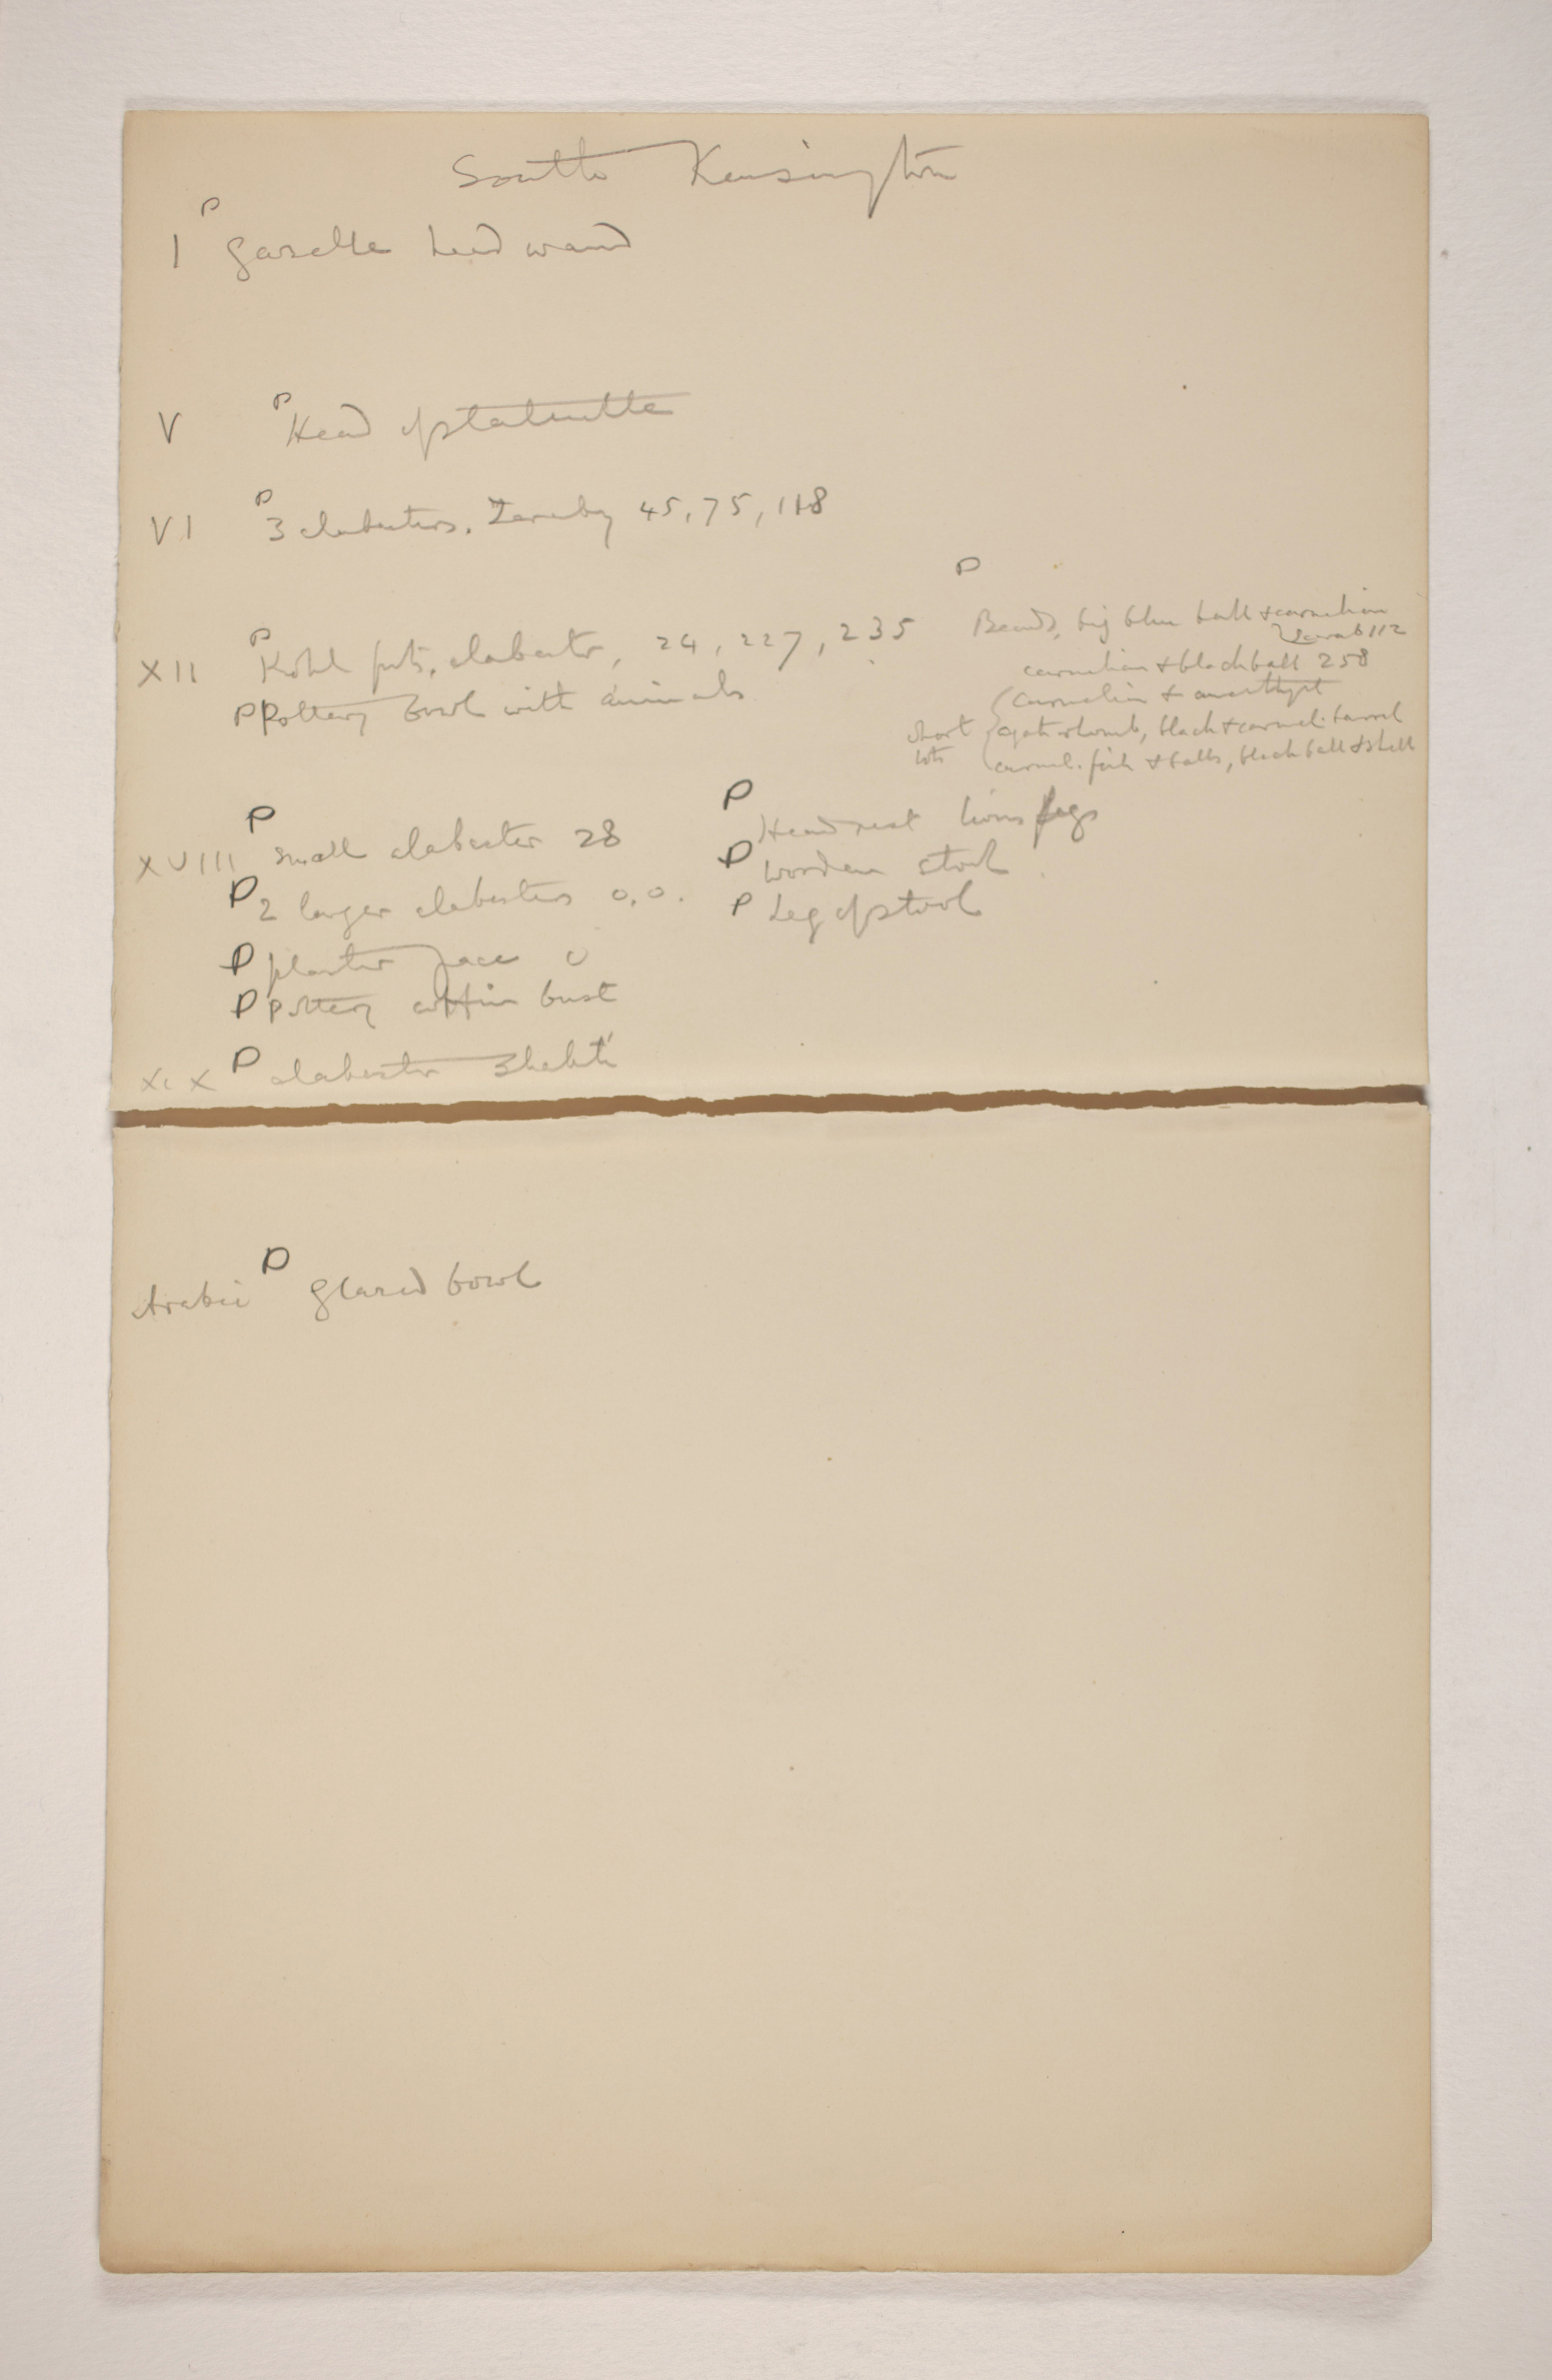 South Kensington
P
I gazelle head wand
P
V Head of statuette
P
VI 3 alabasters. Zaraby 45, 75, 118
P
XII Kohl pots, alabaster, 24, 227, 235
P Pottery bowl with animals
P
Beads, big blue ball & carnelian
Scarab 112
carnelian & black ball 258
carnelian & amethyst
short lots agate rhomb, black & carnel. barrel
carnel. fish & balls, black ball & shell
P
XVIII small alabaster 28
P 2 larger alabasters o, o.
P plaster face o
P Pottery coffin bust
P Headrest lions legs
P Wooden stool
P Leg of stool
XIX P alabaster Shabti
Arabic P glazed bowl